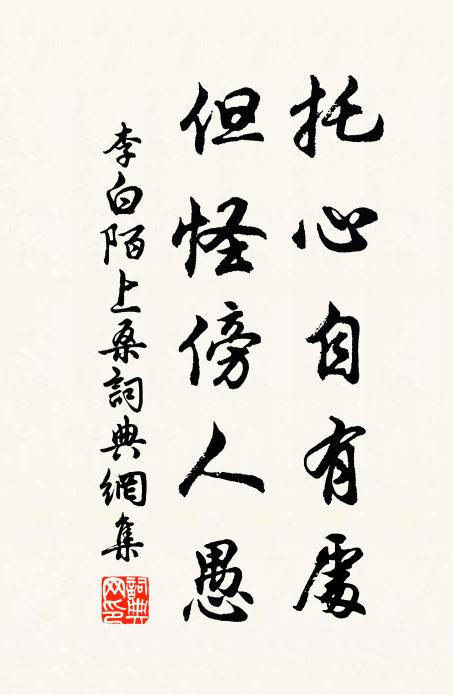 托心自有處
但怪傍人愚
李白陌上桑詞典網集
詞典網印